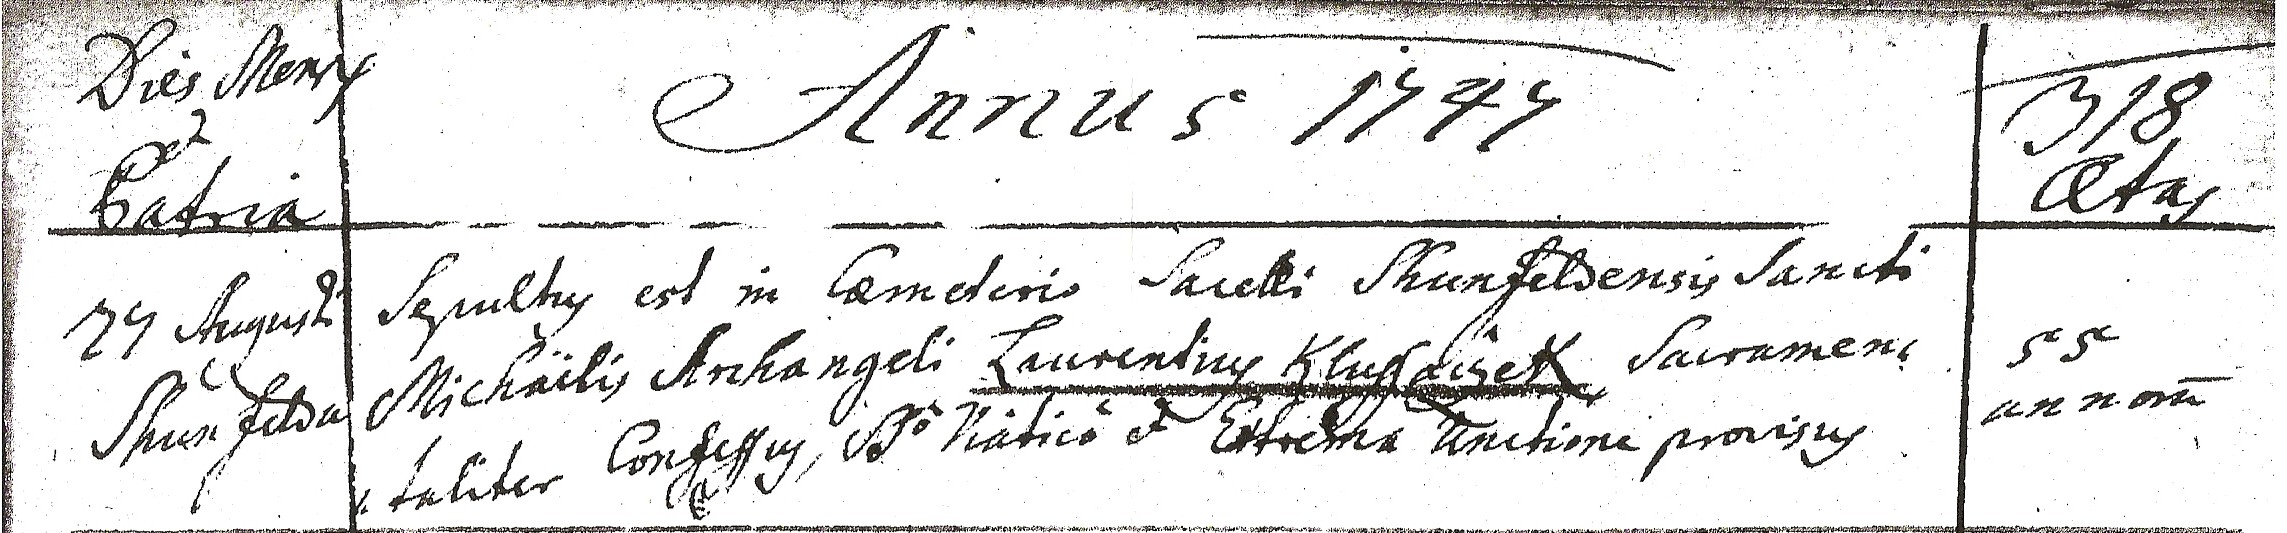 Dies Mensis
et
Patria
Annus 1747
318
Ætas
27 Augusti
Shunfelda
Sepultus est in Cœmeterio Sacelli Shunfeldensis Sancti
Michaëlis Archangeli Laurentius Sacramen
taliter Confessus, Viaticô et Extrema Unctione provisus
55
annorū